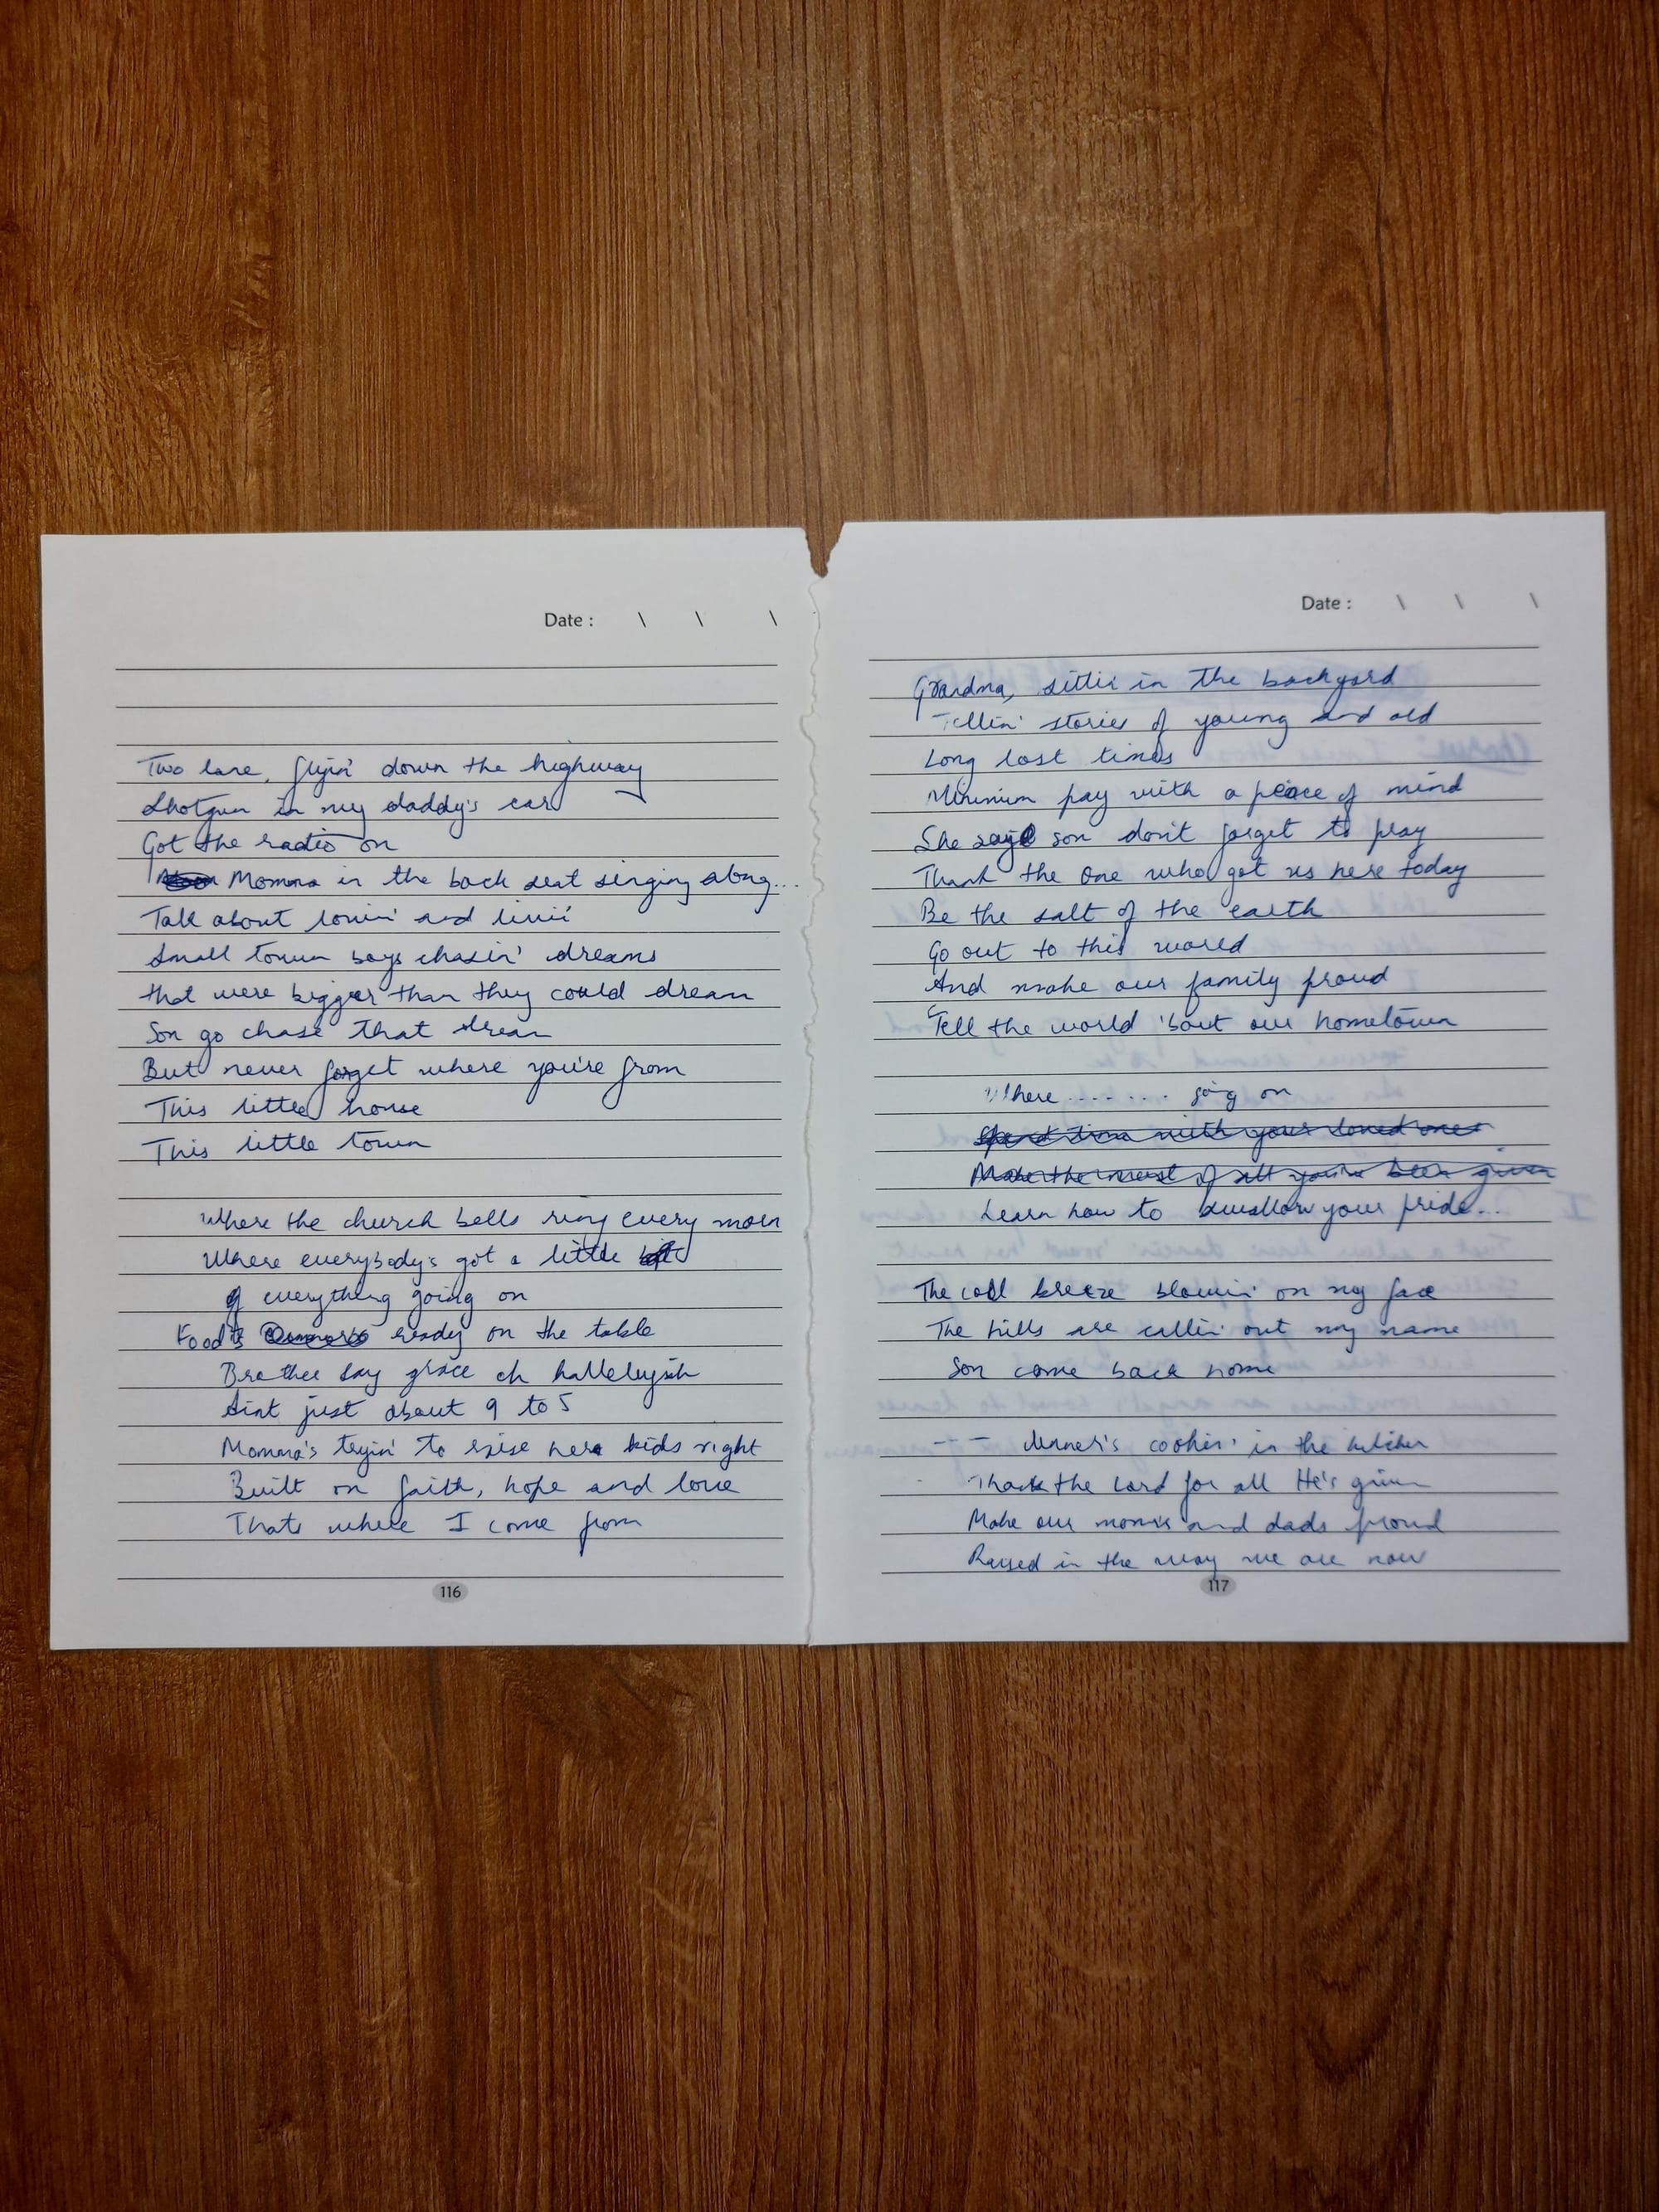 Date : \ \ \
Two lane, flyin' down the highway
Shotgun in my daddy's car
Got the radio on
Momma in the back seat singing along...
Talk about lovin' and livin'
Small town boys chasin' dreams
that were bigger than they could dream
Son go chase that dream
But never forget where you're from
This little house
This little town
Where the church bells ring every morn
Where everybody's got a little bit
of everything going on
Food's ready on the table
Brother say grace oh hallelujah
Aint just about 9 to 5
Momma's tryin' to raise her kids right
Built on faith, hope and love
Thats where I come from
116
Date : \ \ \
Grandma, sittin in the backyard
Tellin' stories of young and old
Long lost times
Minimum pay with a peace of mind
She says son don't forget to pray
Thank the one who got us here today
Be the salt of the earth
Go out to this world
And make our family proud
Tell the world 'bout our hometown
Where ....... going on
Spend time with your loved ones
Make the most of all you've been given
Learn how to swallow your pride...
The cool breeze blowin' on my face
The hills are callin' out my name
Son come back home
--- dinner's cookin' in the kitchen
Thank the Lord for all He's given
Make our moms and dads proud
Raised in the way we are now
117